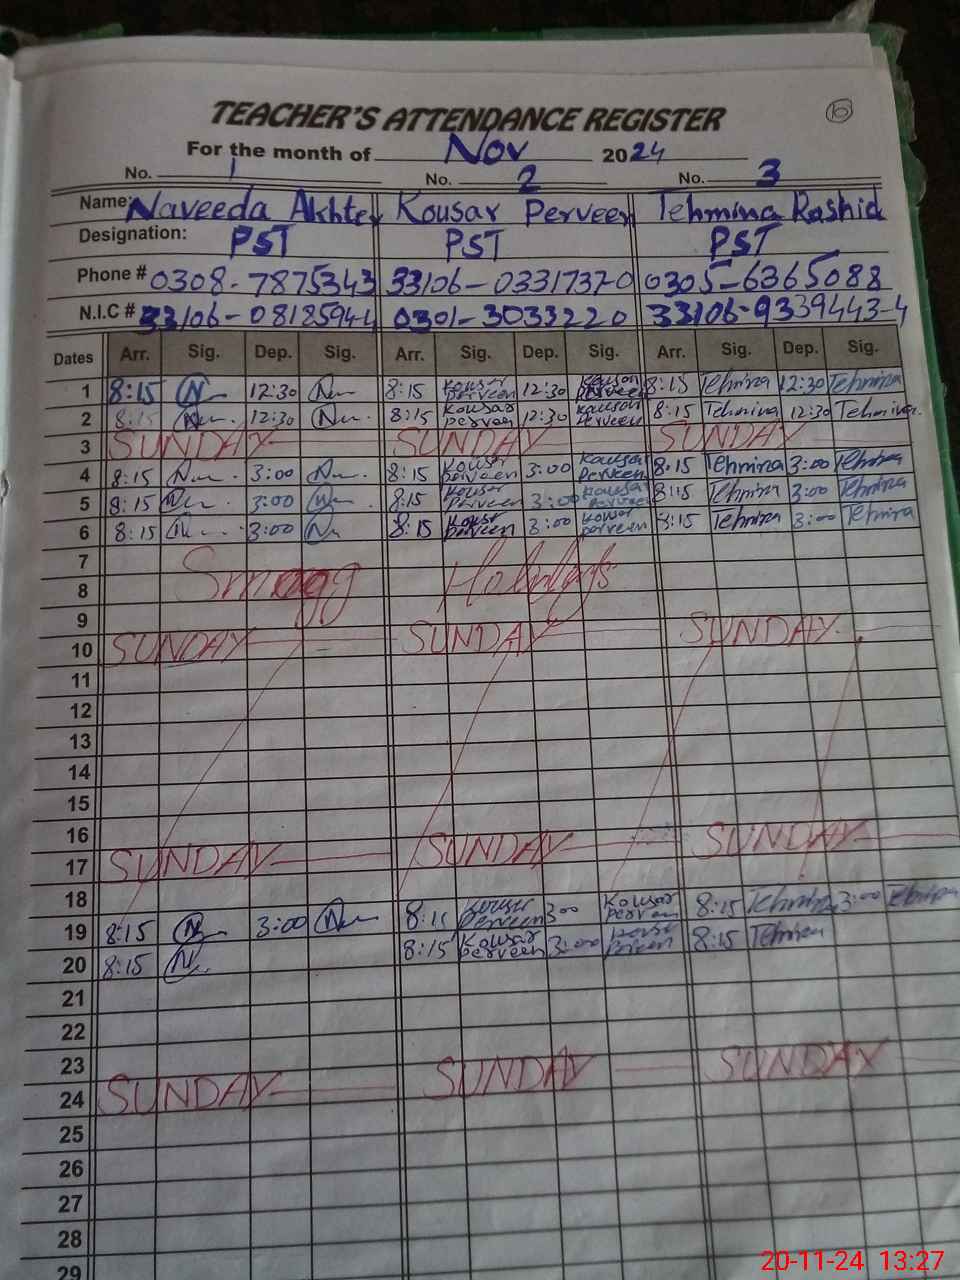 10
TEACHER'S ATTENDANCE REGISTER
For the month of Nov 2024
No. 1 No. 2 No. 3
Name: Naveeda Akhter Kousar Perveen Tehmina Rashid
Designation: PST PST PST
Phone # 0308-7875343 33106-0331737-0 0305-6365088
N.I.C # 33106-0818594-4 0301-3033220 33106-9339443-4
Dates Arr. Sig. Dep. Sig. Arr. Sig. Dep. Sig. Arr. Sig. Dep. Sig.
1 8:15 N 12:30 N 8:15 Kousar Perveen 12:30 Kousar Perveen 8:15 Tehmina 12:30 Tehmina
2 8:15 N 12:30 N 8:15 Kousar Perveen 12:30 Kousar Perveen 8:15 Tehmina 12:30 Tehmina
3 SUNDAY SUNDAY SUNDAY
4 8:15 N 3:00 N 8:15 Kousar Perveen 3:00 Kousar Perveen 8:15 Tehmina 3:00 Tehmina
5 8:15 N 3:00 N 8:15 Kousar Perveen 3:00 Kousar Perveen 8:15 Tehmina 3:00 Tehmina
6 8:15 N 3:00 N 8:15 Kousar Perveen 3:00 Kousar Perveen 8:15 Tehmina 3:00 Tehmina
7
8 Smogg Holidays
9
10 SUNDAY SUNDAY SUNDAY
11
12
13
14
15
16
17 SUNDAY SUNDAY SUNDAY
18
19 8:15 N 3:00 N 8:15 Kousar Perveen 3:00 Kousar Perveen 8:15 Tehmina 3:00 Tehmina
20 8:15 N 8:15 Kousar Perveen 3:00 Kousar Perveen 8:15 Tehmina
21
22
23
24 SUNDAY SUNDAY SUNDAY
25
26
27
28
29
20-11-24 13:27